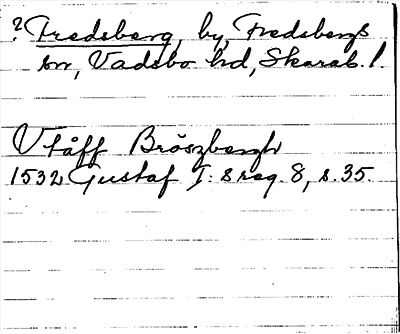 ? Fredsberg, by, Fredsbergs
sn, Vadsbo hd, Skarab. l.
Vtåff Bröszbergh
1532 Gustaf I:s reg. 8, s. 35.